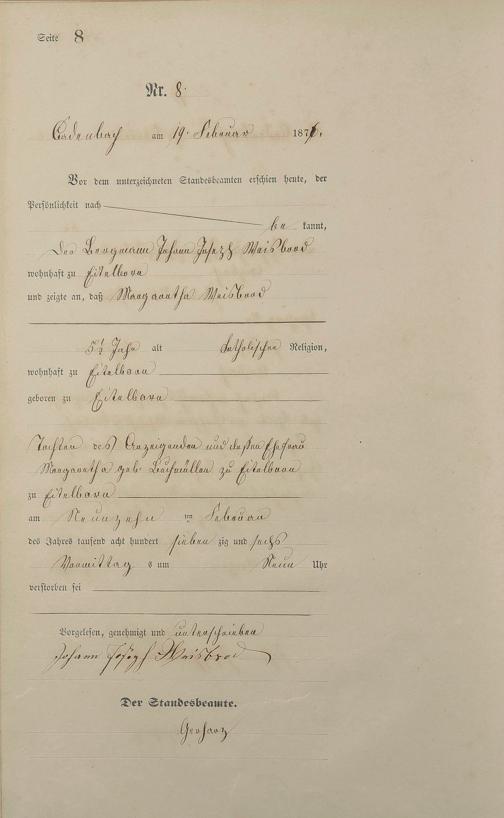 Seite 8
Nr. 8.
Cadenbach am 19. Februar 1876.
Vor dem unterzeichneten Standesbeamten erschien heute, der
Persönlichkeit nach
be kannt,
der Bergmann Johann Joseph Weisbrod
wohnhaft zu Eitelborn
und zeigte an, daß Margaretha Weisbrod
5½ Jahr alt katholischer Religion,
wohnhaft zu Eitelborn
geboren zu Eitelborn
Tochter des Anzeigenden und dessen Ehefrau
Margaretha geb. Buchmüller zu Eitelborn
zu Eitelborn
am Neunzehn ten Februar
des Jahres tausend acht hundert sieben zig und sechs
Vormittag s um Neun Uhr
verstorben sei
Vorgelesen, genehmigt und unterschrieben
Johann Joseph Weisbrod
Der Standesbeamte.
Gerharz